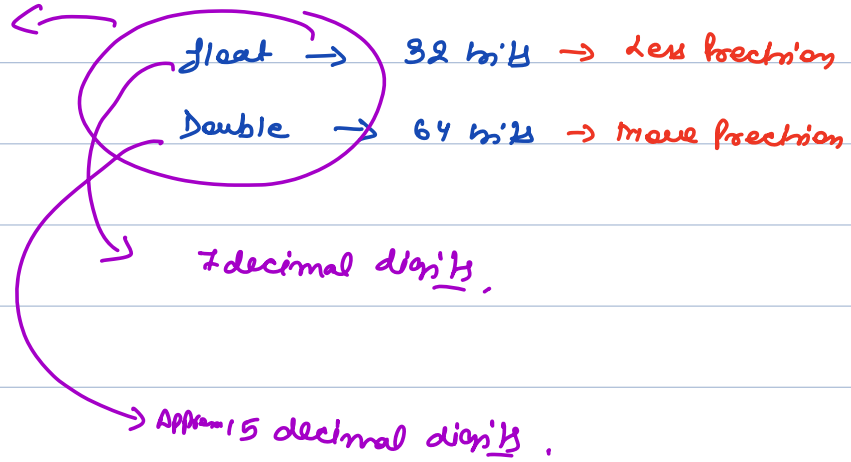 float → 32 bits → Less Precision
Double → 64 bits → More Precision
7 decimal digits.
Approx 15 decimal digits.